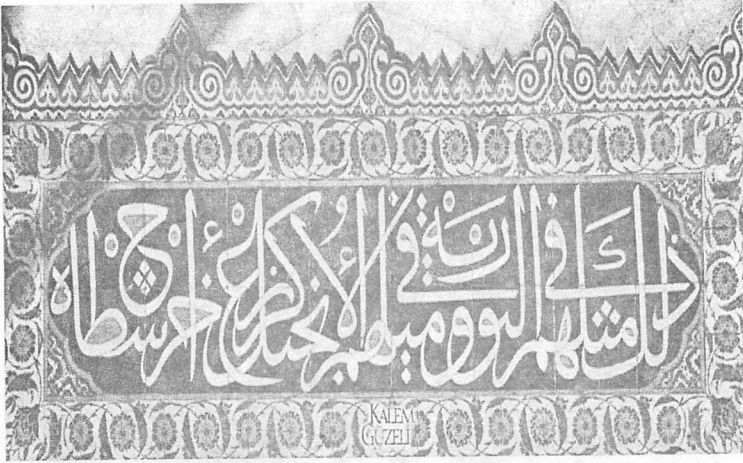 ذلك مثلهم في التورية ومثلهم في الإنجيل كزرع أخرج شطأه
KALEM
GÜZELİ